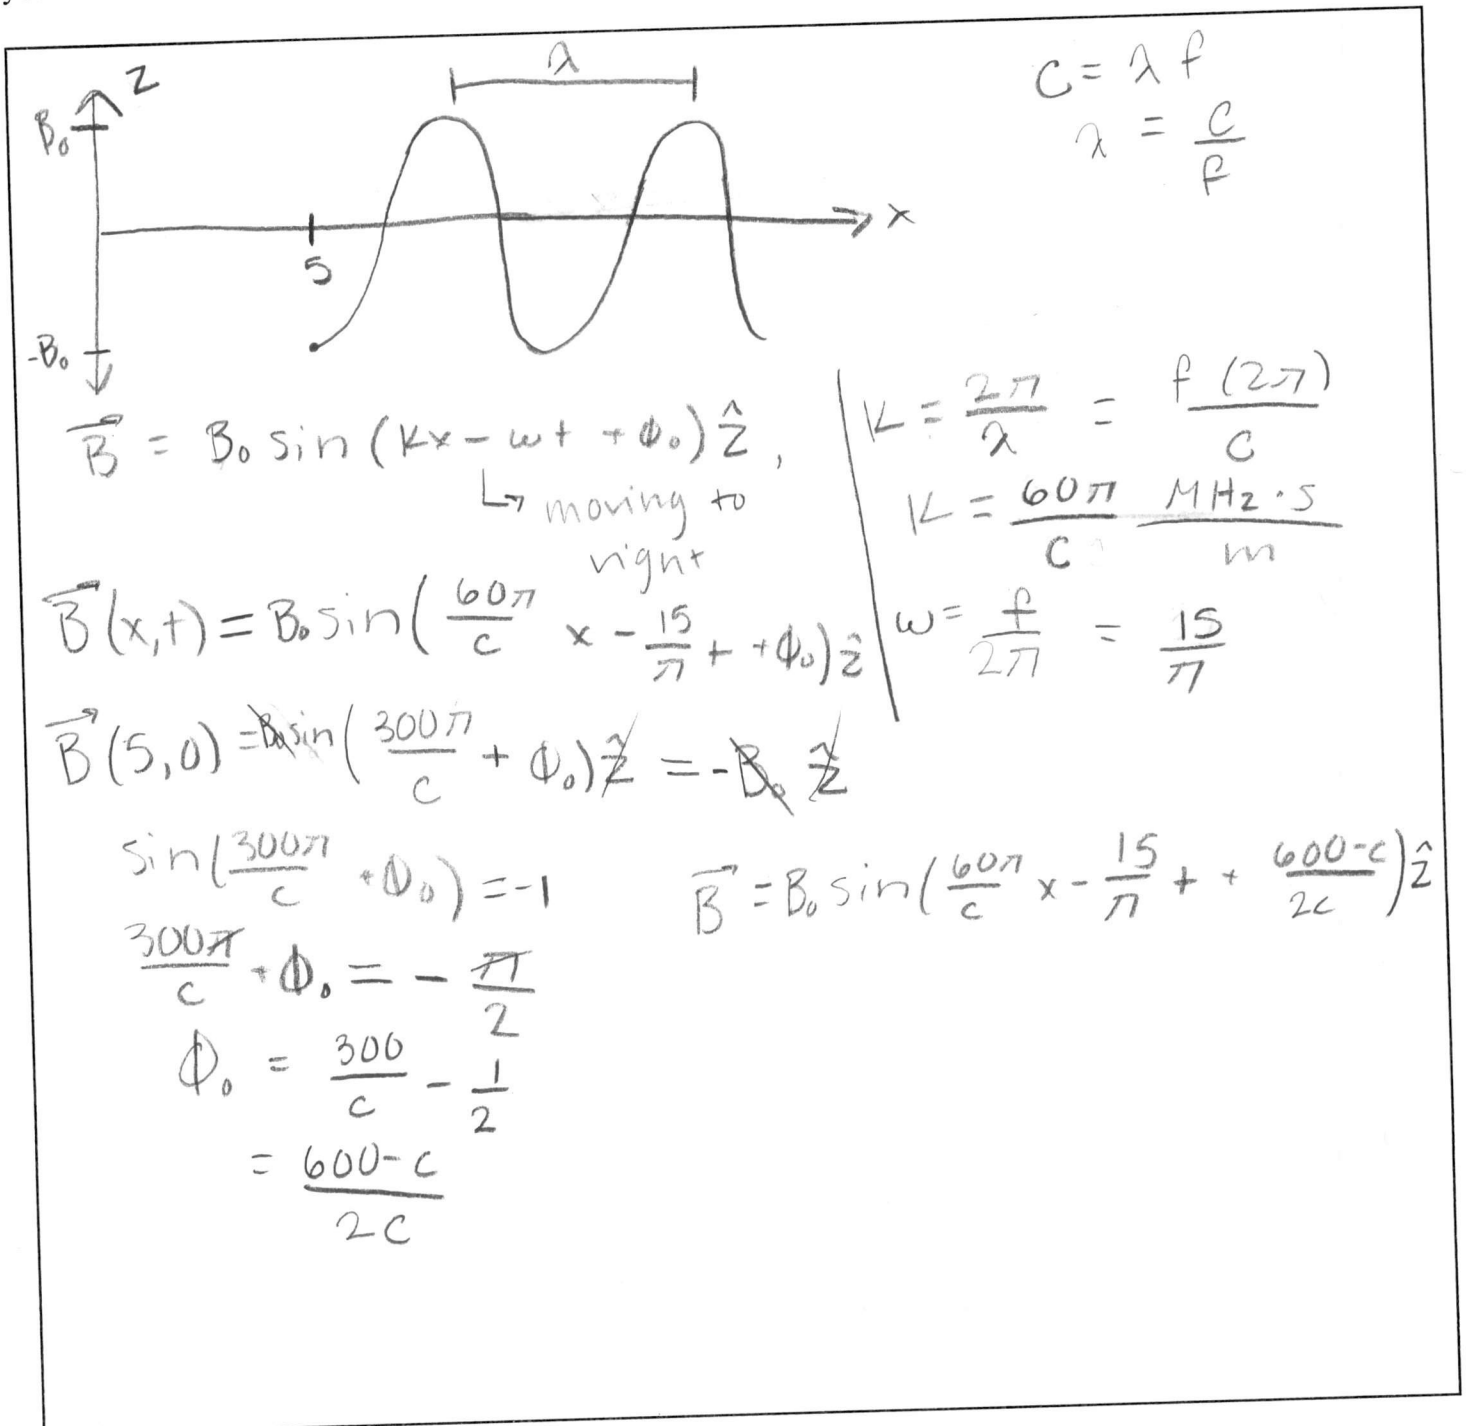 z
λ
B₀
x
5
-B₀
C = λ f
λ = c/f
B⃗ = B₀ sin (kx - ωt + ϕ₀) ẑ,
↳ moving to
right
K = 2π/λ = f (2π)/c
K = 60π/c MHz·s/m
ω = f/2π = 15/π
B⃗(x,t) = B₀ sin( 60π/c x - 15/π t + ϕ₀) ẑ
B⃗(5,0) = B₀ sin( 300π/c + ϕ₀) ẑ = -B₀ ẑ
sin(300π/c + ϕ₀) = -1
300π/c + ϕ₀ = - π/2
ϕ₀ = 300/c - 1/2
= 600-c/2c
B⃗ = B₀ sin( 60π/c x - 15/π t + 600-c/2c ) ẑ